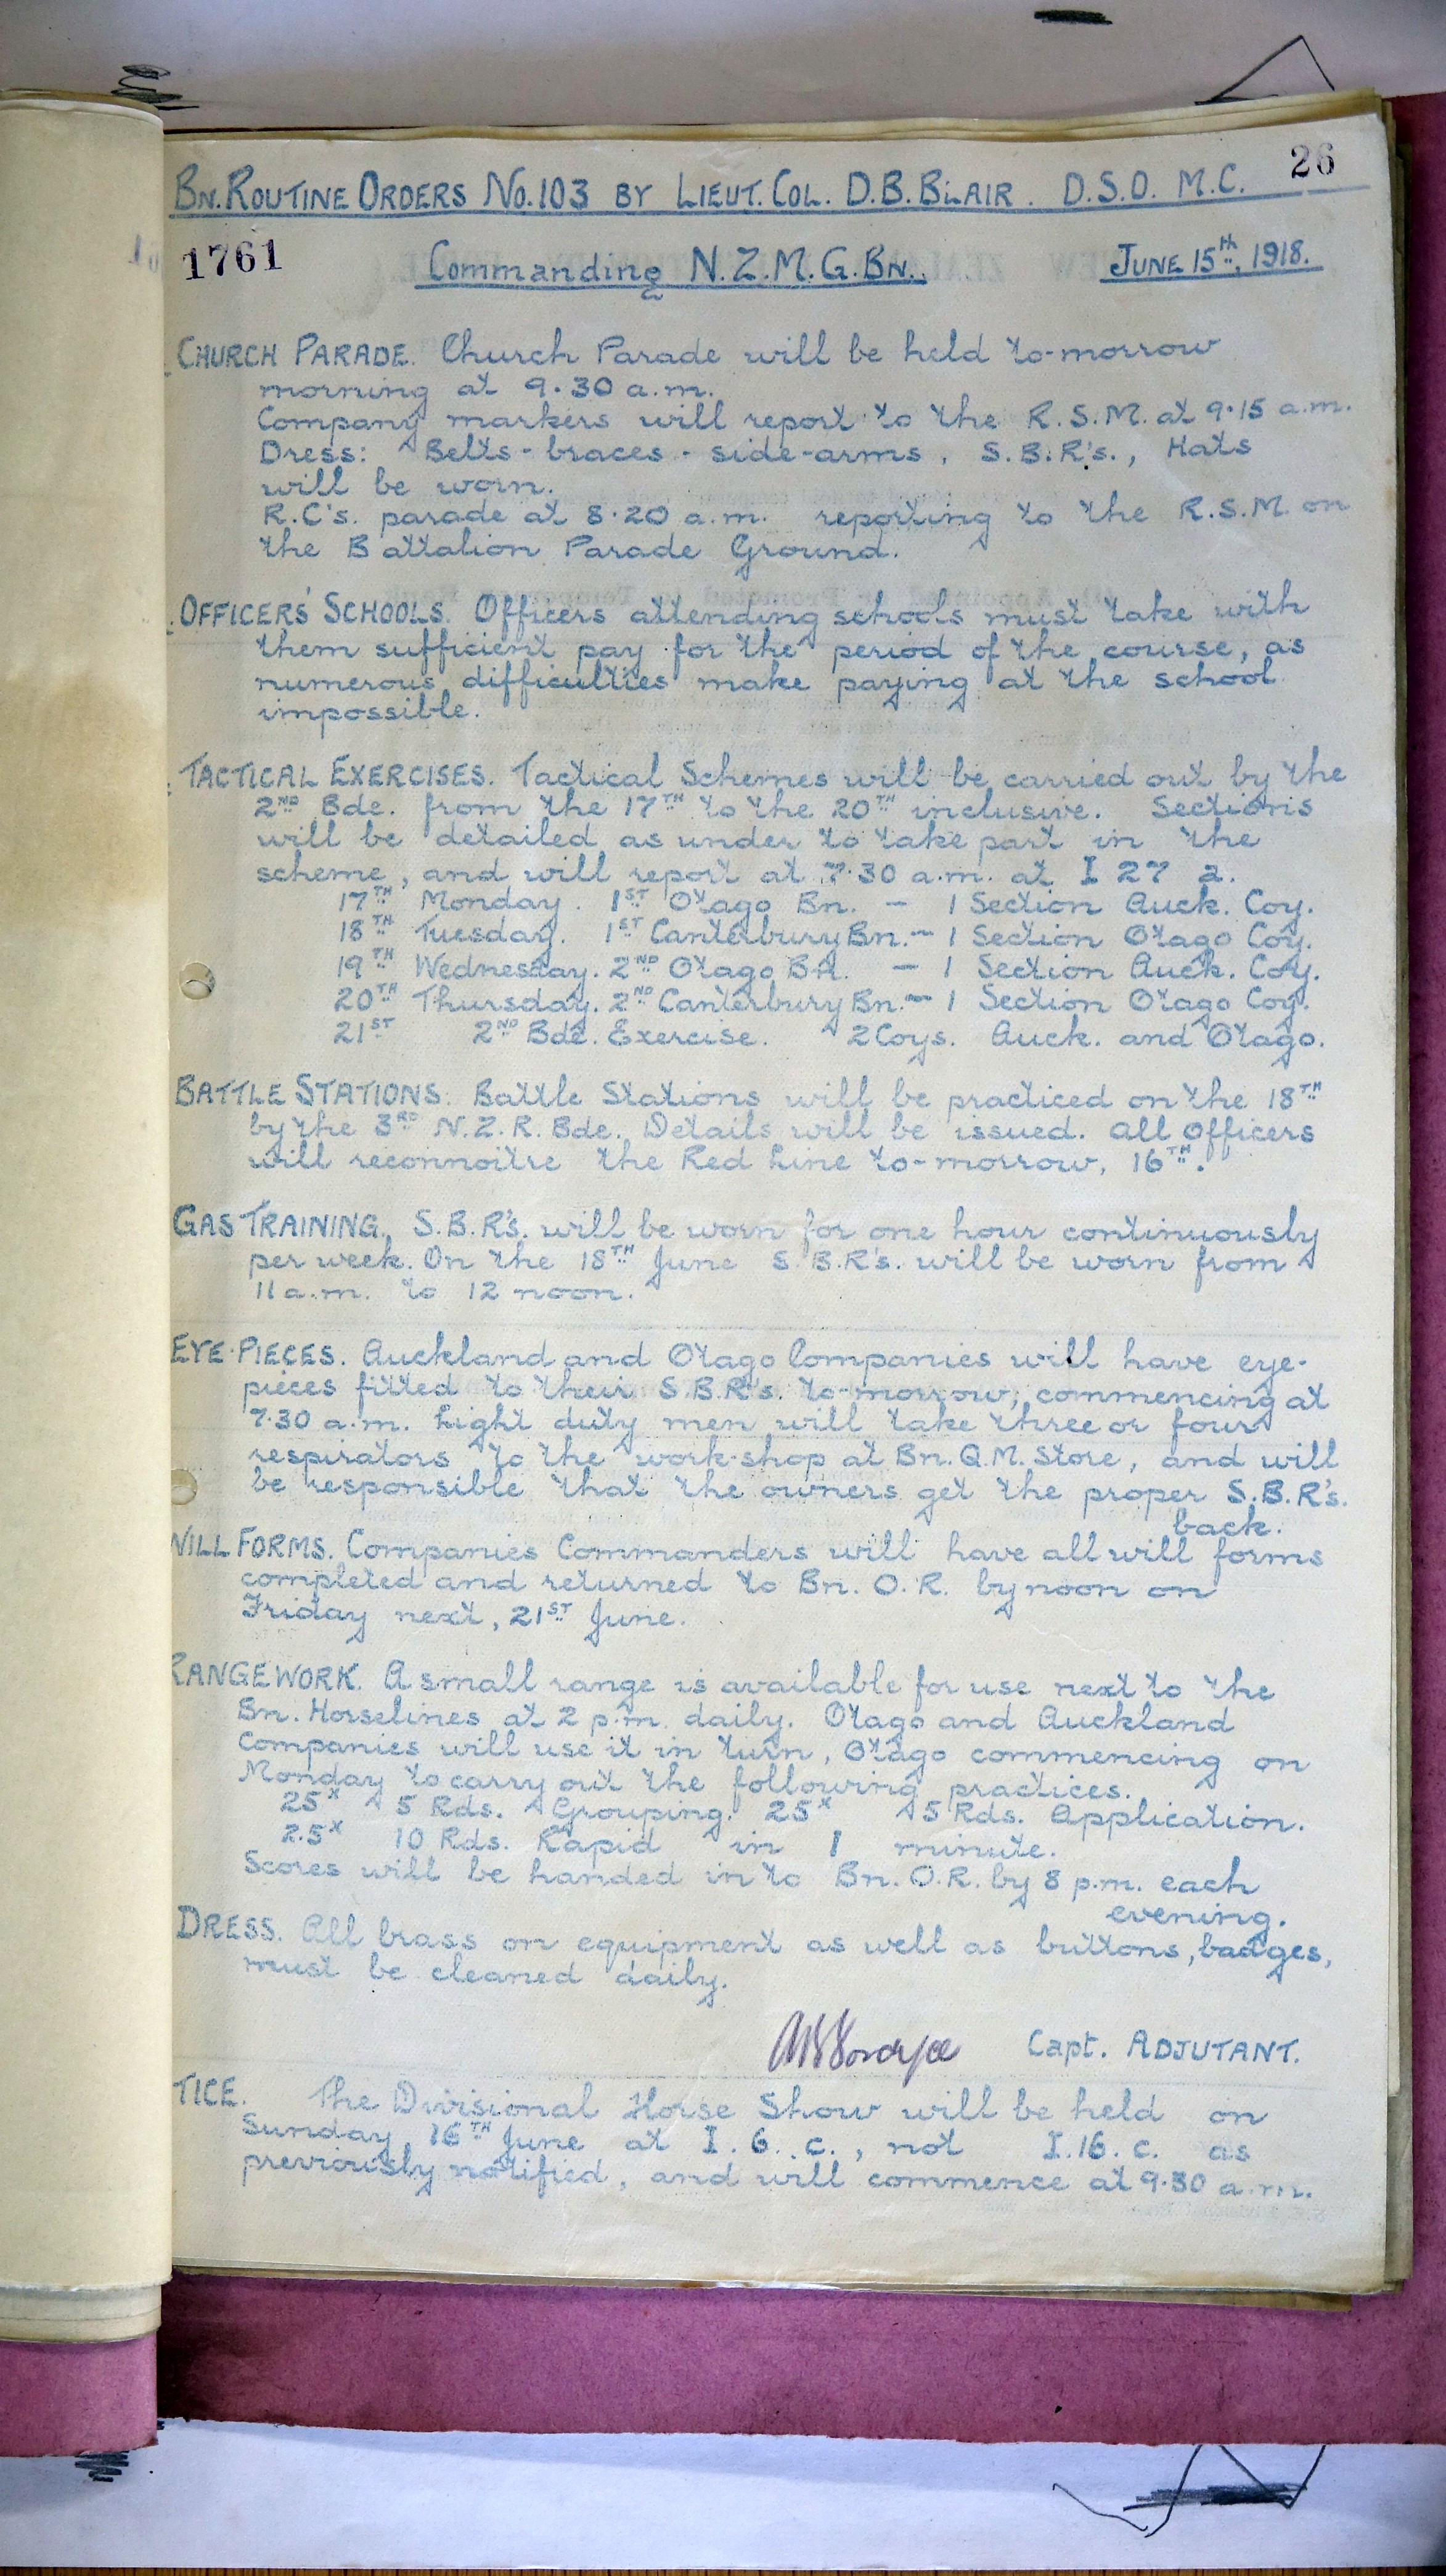 26
BN. ROUTINE ORDERS NO.103 BY LIEUT. COL. D.B. BLAIR. D.S.O. M.C.
1761 Commanding N.Z.M.G.BN. JUNE 15th, 1918.
CHURCH PARADE. Church Parade will be held to-morrow
morning at 9.30 a.m.
Company markers will report to the R.S.M. at 9.15 a.m.
Dress: Belts - braces - side-arms, S.B.R's., Hats
will be worn.
R.C's. parade at 8.20 a.m. reporting to the R.S.M. on
the Battalion Parade Ground.
OFFICERS' SCHOOLS. Officers attending schools must take with
them sufficient pay for the period of the course, as
numerous difficulties make paying at the school
impossible.
TACTICAL EXERCISES. Tactical Schemes will be carried out by the
2ND Bde. from the 17TH to the 20TH inclusive. Sections
will be detailed as under to take part in the
scheme, and will report at 7.30 a.m. at I 27 a.
17TH Monday. 1ST Otago Bn. - 1 Section Auck. Coy.
18TH Tuesday. 1ST Canterbury Bn. - 1 Section Otago Coy.
19TH Wednesday. 2ND Otago Bn. - 1 Section Auck. Coy.
20TH Thursday. 2ND Canterbury Bn. - 1 Section Otago Coy.
21ST 2ND Bde. Exercise. 2 Coys. Auck. and Otago.
BATTLE STATIONS. Battle Stations will be practiced on the 18TH
by the 3RD N.Z.R. Bde. Details will be issued. All Officers
will reconnoitre the Red Line to-morrow, 16TH.
GAS TRAINING. S.B.R's. will be worn for one hour continuously
per week. On the 18TH June S.B.R's. will be worn from
11 a.m. to 12 noon.
EYE-PIECES. Auckland and Otago Companies will have eye-
pieces fitted to their S.B.R's. to-morrow, commencing at
7.30 a.m. Light duty men will take three or four
respirators to the work-shop at Bn. Q.M. Store, and will
be responsible that the owners get the proper S.B.R's.
back.
WILL FORMS. Companies Commanders will have all will forms
completed and returned to Bn. O.R. by noon on
Friday next, 21ST June.
RANGEWORK. A small range is available for use next to the
Bn. Horselines at 2 p.m. daily. Otago and Auckland
Companies will use it in turn, Otago commencing on
Monday to carry out the following practices.
25x 5 Rds. Grouping. 25x 5 Rds. Application.
25x 10 Rds. Rapid in 1 minute.
Scores will be handed in to Bn. O.R. by 8 p.m. each
evening.
DRESS. All brass on equipment as well as buttons, badges,
must be cleaned daily.
Capt. ADJUTANT.
TICE. The Divisional Horse Show will be held on
Sunday 16TH June at I. 6. c., not I.16. c. as
previously notified, and will commence at 9.30 a.m.